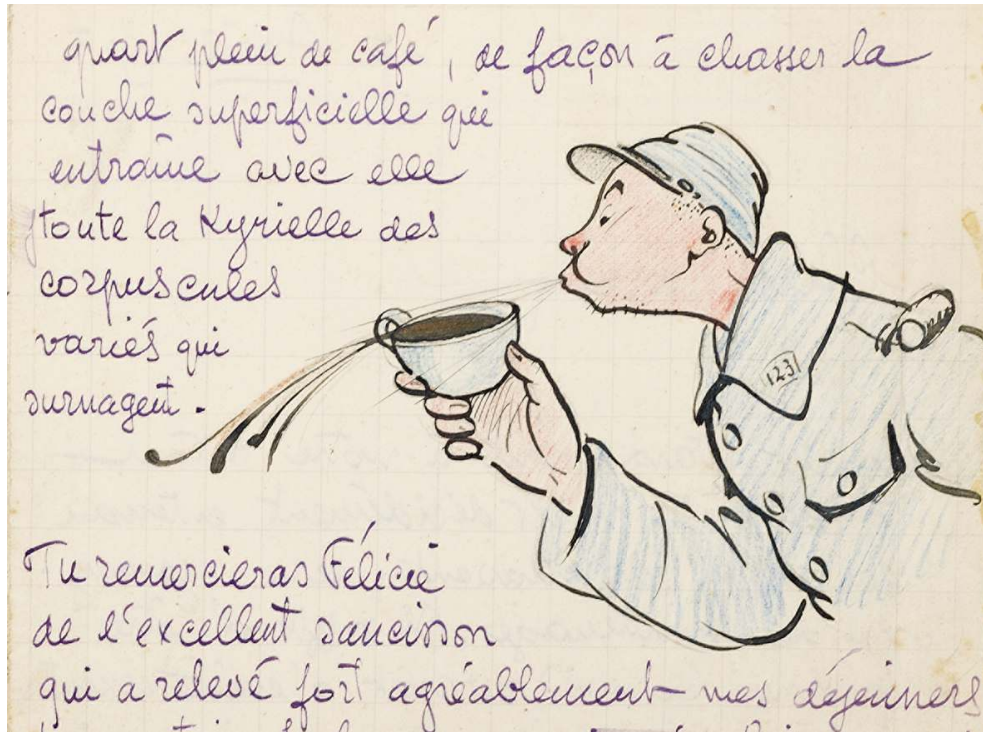 quart plein de café, de façon à chasser la
couche superficielle qui
entraîne avec elle
toute la Kyrielle des
corpuscules
variés qui
surnagent.
123
Tu remercieras Félicie
de l'excellent saucisson
qui a relevé fort agréablement mes déjeuners